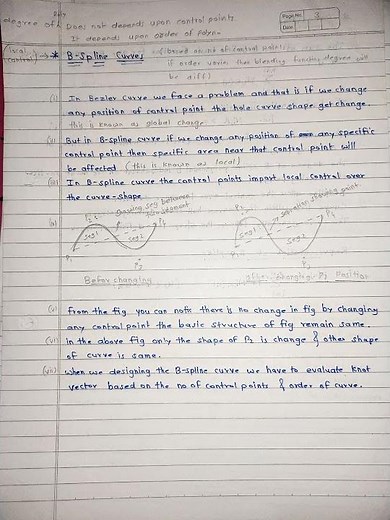 degree of Does not depend upon control points
It depend upon order of Polyn
Page No: 3
Date:
(local control) → * B-Spline Curves (based on no. of control points
if order varies then blending function degree will
be diff)
(i) In Bezier curve we face a problem and that is if we change
any position of control point the hole curve shape get change.
this is known as global change
(ii) But in B-spline curve if we change any position of any specific
control point then specific area near that control point will
be affected (this is known as local)
(iii) In B-spline curve the control points impart local control over
the curve-shape.
Seg 1
Seg 2
P1
Seg 1
Seg 2
P1
Before changing
after changing P2 Position
(v) from the fig you can notis there is no change in fig by changing
any control point the basic structure of fig remain same.
(vi) in the above fig only the shape of P2 is change & other shape
of curve is same.
(vii) when we designing the B-spline curve we have to evaluate knot
vector based on the no of control points & order of curve.